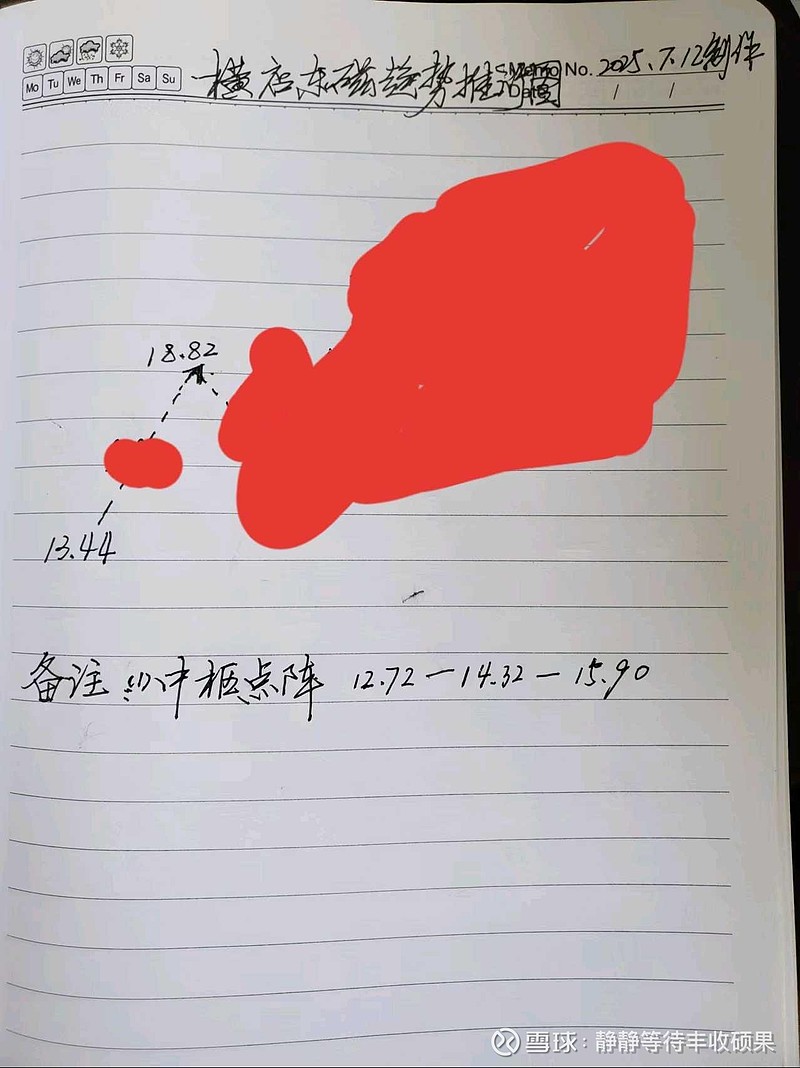 Mo Tu We Th Fr Sa Su
横店东磁趋势推演图 Memo No. 2025.7.12制作
Date / /
18.82
13.44
备注 (1)中枢点阵 12.72—14.32—15.90
雪球:静静等待丰收硕果